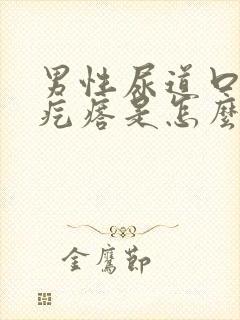 男性尿道口
疙瘩是怎麼
金鷹節